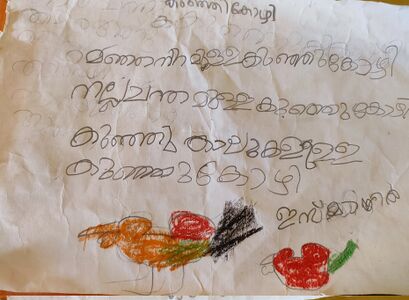 കുഞ്ഞി കോഴി
മഞ്ഞനിറമുള്ള കുഞ്ഞികോഴി
നല്ല ചന്തമുള്ള കുഞ്ഞുകോഴി
കുഞ്ഞി കാലുകളുള്ള
കുഞ്ഞുകോഴി
ഇസ്മായിൽ